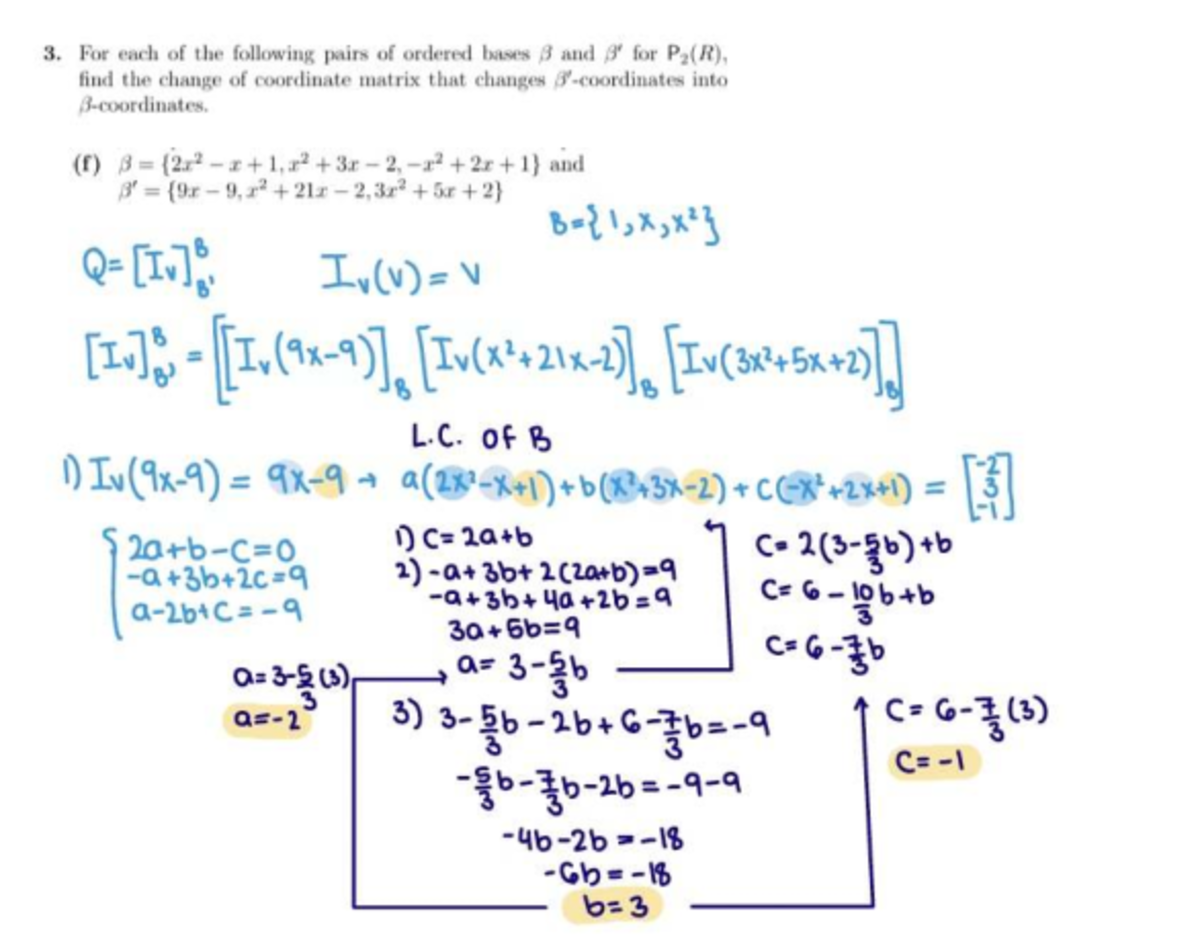 3. For each of the following pairs of ordered bases β and β′ for P₂(R),
find the change of coordinate matrix that changes β′-coordinates into
β-coordinates.
(f) β = {2x² − x + 1, x² + 3x − 2, −x² + 2x + 1} and
β′ = {9x − 9, x² + 21x − 2, 3x² + 5x + 2}
B={1,x,x²}
Q= [Iv]ᴮ_B'
Iv(v) = v
[Iv]ᴮ_B' = [[Iv(9x-9)]_B [Iv(x²+21x-2)]_B [Iv(3x²+5x+2)]_B]
L.C. OF B
1) Iv(9x-9) = 9x-9 → a(2x²-x+1)+b(x²+3x-2)+c(-x²+2x+1) = [-2 3 -1]
2a+b-c=0
-a+3b+2c=9
a-2b+c=-9
1) c= 2a+b
2) -a+3b+2(2a+b)=9
-a+3b+4a+2b=9
3a+5b=9
a= 3-5/3b
c= 2(3-5/3b)+b
c= 6-10/3b+b
c= 6-7/3b
a=3-5/3(3)
a=-2
3) 3-5/3b-2b+6-7/3b=-9
-5/3b-7/3b-2b=-9-9
-4b-2b=-18
-6b=-18
b=3
c= 6-7/3(3)
c=-1